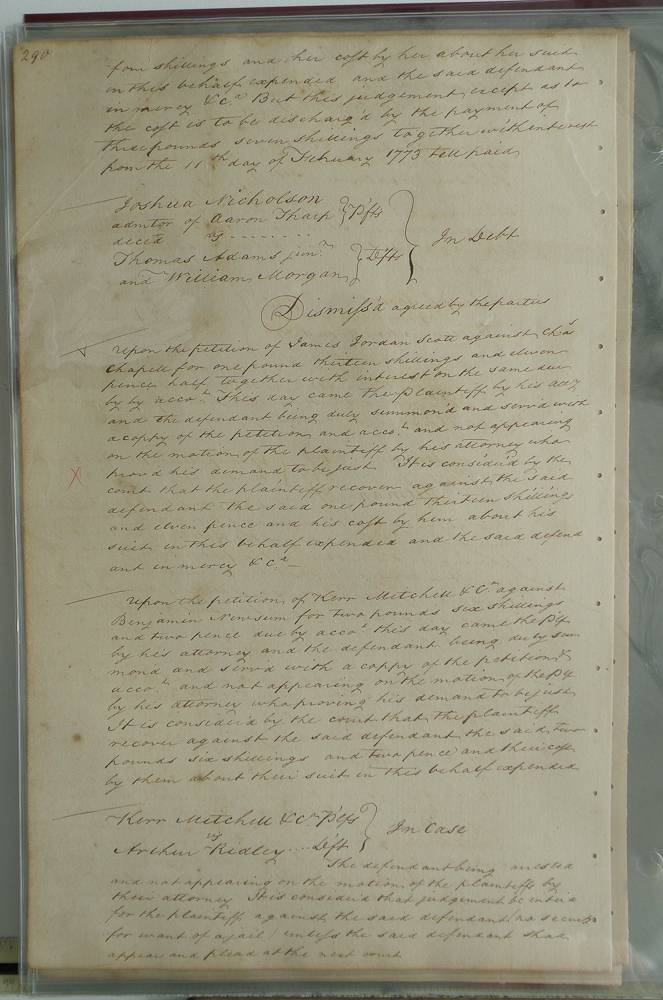 290
four shillings and her cost by her about her suit
in this behalf expended and the said defendant
in mercy &c.a But this judgement except as to
the cost is to be discharg'd by the payment of
three pounds seven shillings together with interest
from the 11th day of February 1773 till paid
Joshua Nicholson
admtor of Aaron Tharp } Plfts
deced vs
Thomas Adams junr. } Defts
and William Morgan
In Debt
Dismiss'd agreed by the parties
Upon the petition of James Jordan Scott against Chas
Chapell for one pound thirteen shillings and eleven
pence half together with interest on the same due
by by accot. This day came the Plaintiff by his atty
and the defendant being duly summon'd and serv'd with
a coppy of the petition and acct. and not appearing
on the motion of the plaintiff by his attorney who
prov'd his demand to be just It is consider'd by the
court that the plaintiff recover against the said
defendant the said one pound thirteen shillings
and elven pence and his cost by him about his
suit in this behalf expended and the said defend
ant in mercy &c.a
Upon the petition of Kerr Mitchell & Co. against
Benjamin Newsum for two pounds six shillings
and two pence due by accot this day came the Plf
by his attorney and the defendant being duly sum
mond and serv'd with a coppy of the petition &
accot. and not appearing on the motion of the Plf
by his attorney who proving his demand to be just
It is consider'd by the court that the plaintiff
recover against the said defendant the said two
pounds six shillings and two pence and their cost
by them about their suit in this behalf expended
Kerr Mitchell & Co. Plfs
vs
Archer Ridley Deft
In Case
The defendant being arrested
and not appearing on the motion of the plaintiffs by
their attorney It is consider'd that judgement be enter'd
for the plaintiff against the said defendant no security
for want of a jail unless the said defendant shall
appear and plead at the next court